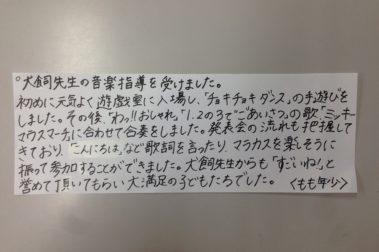 ○犬飼先生の音楽指導を受けました。
初めに元気よく遊戯室に入場し、「チョキチョキダンス」の手遊びを
しました。その後、「わっ!!おしゃれ」「1.2の3でごあいさつ」の歌「ミッキー
マウスマーチ」に合わせて合奏をしました。発表会の流れも把握して
きており、「こんにちは」など歌詞を言ったり、マラカスを楽しそうに
振って参加することができました。犬飼先生からも「すごいね!」と
誉めて頂いてもらい大満足の子どもたちでした。〈もも年少〉